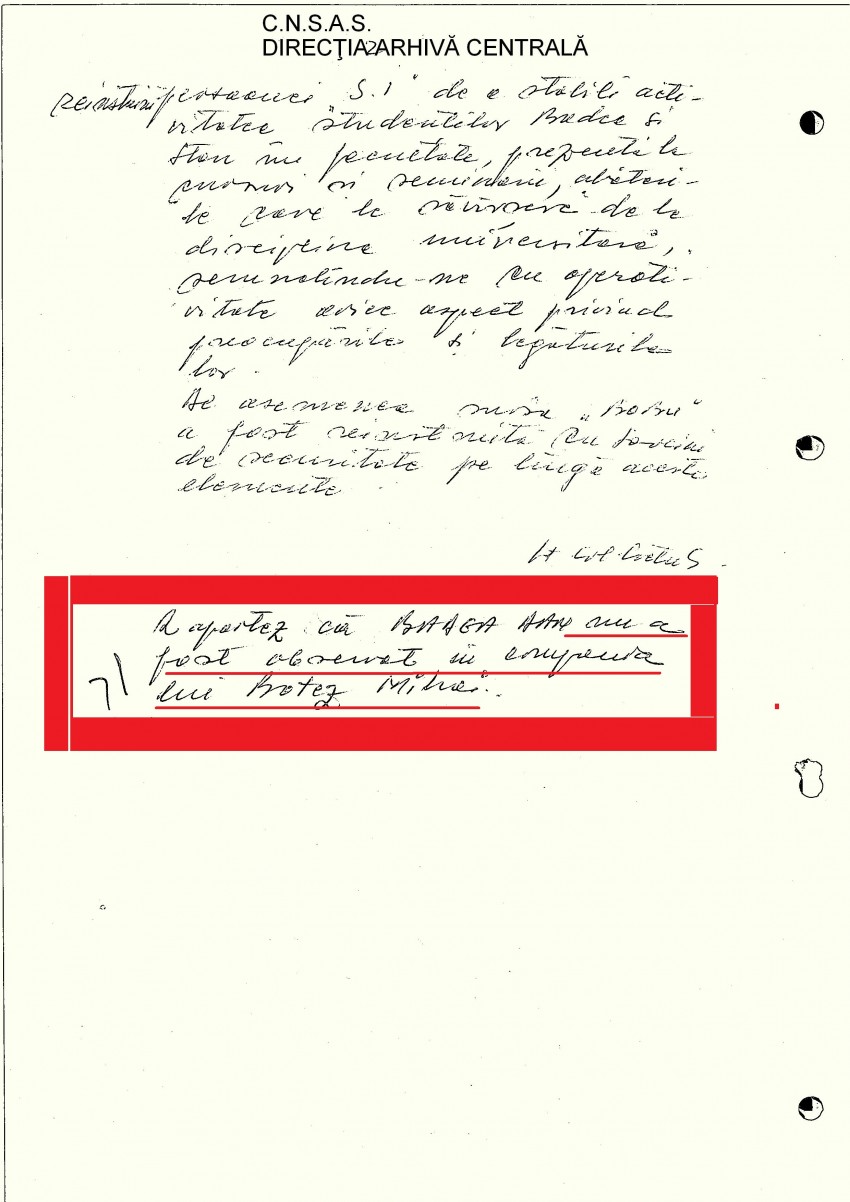 C.N.S.A.S.
DIRECŢIA 2 ARHIVĂ CENTRALĂ
persoanei "S.I" de a stabili acti-
vitatea studenților Badea și
Stan în facultate, prezența la
cursuri și seminarii, abateri-
le care le săvîrșesc de la
disciplina universitară,
semnalîndu-ne cu operati-
vitate orice aspect privind
preocupările și legăturile
lor.
De asemenea sursa „BOBU"
a fost reinstruită cu sarcini
de securitate pe lîngă aceste
elemente.
lt col
Raportez că BADEA DAN nu a
fost observat în compania
lui Botez Mihai.